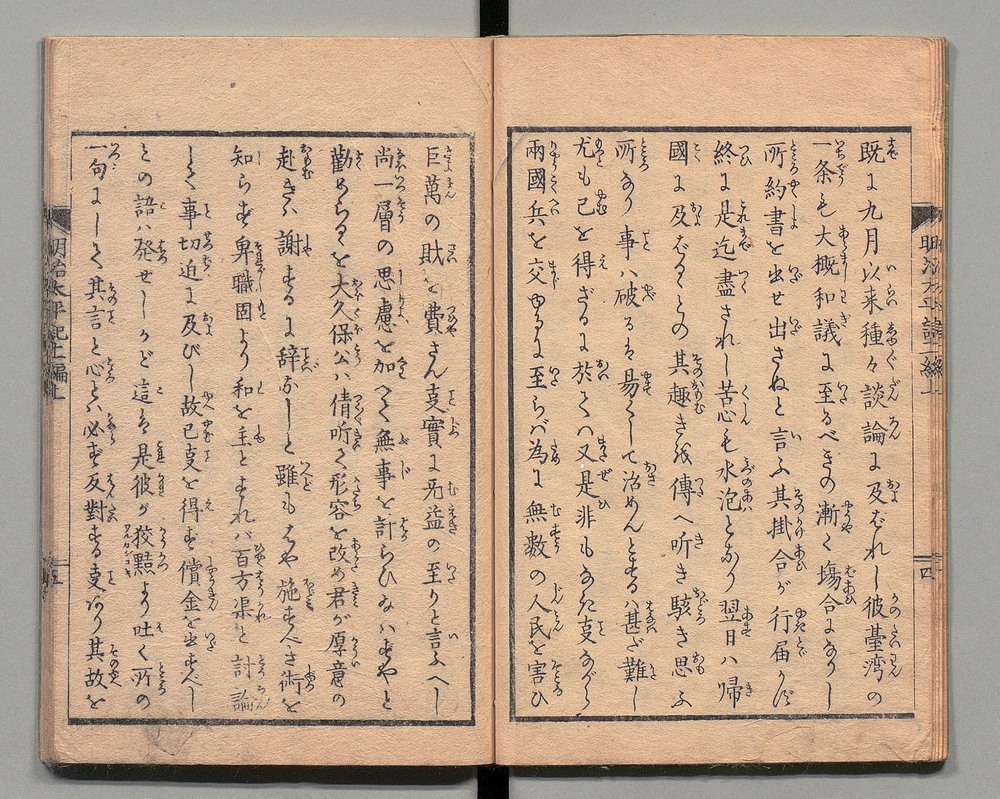 既に九月以来種々談論に及ばれし彼臺湾の
一条も大概和議に至るべきの漸く塲合にありし
所約書を出せ出さねと言ふ其掛合が行届かず
終に是迄盡されし苦心も水泡となり翌日ハ帰
國に及ばるゝとの其趣きを傳へ听き駭き思ふ
所あり事ハ破るゝ易くして治めんとするハ甚だ難し
尤も已を得ざるに於てハ又是非もなき支ながら
兩國兵を交ゆるに至らバ為に無数の人民を害ひ
巨萬の財を費さん支實に无益の至りと言ふへし
尚一層の思慮を加へて無事を計らひなハずやと
勸めらるゝを大久保公ハ倩听て形容を改め君が厚意の
赴きハ謝するに辞なしと雖もはや施すべき術を
知らず卑職固より和を主とすれバ百方渠と討論
して事切迫に及びし故已支を得ず償金を出すべし
との語ハ発せしかど這は是彼が狡黠より吐く所の
一句にして其言と心とハ必ず反對する支あり其故を
明治太平記十編上
四
明治太平記十編上
五